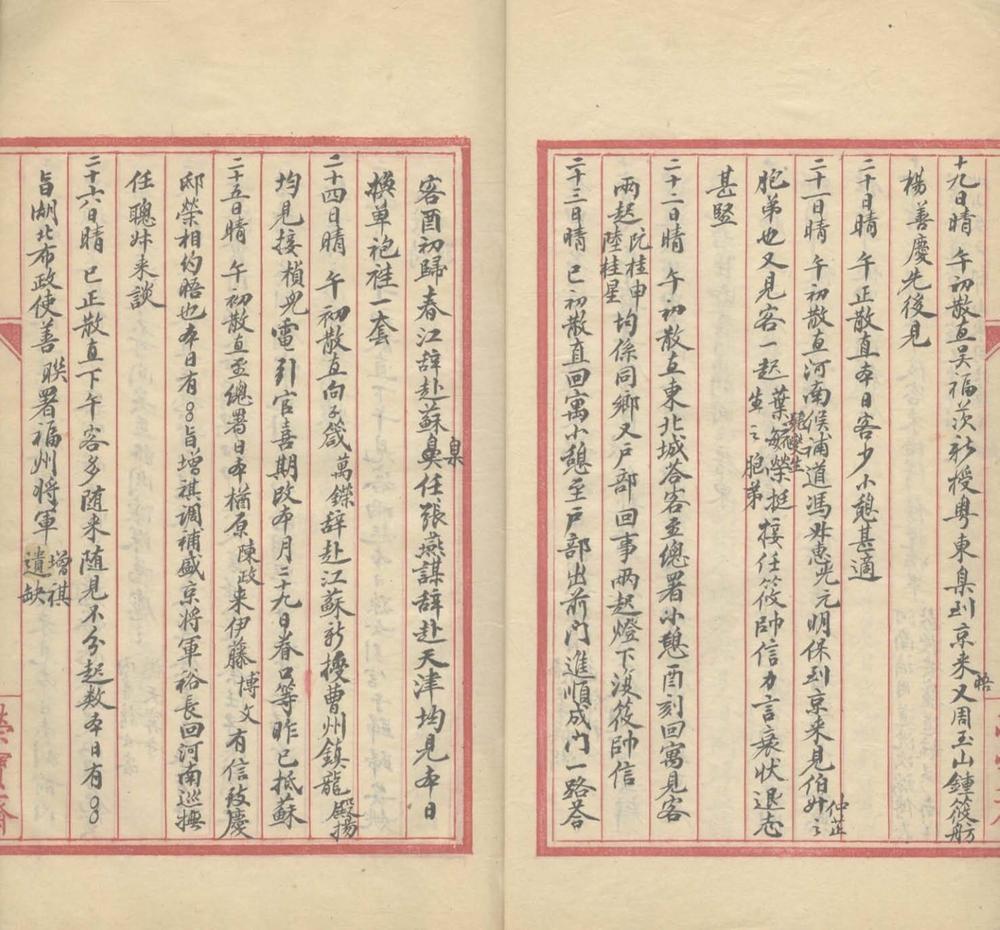 十九日晴 午初散直吴福茨新授粤東臬到京来晤又周玉山鍾筱舫
楊善慶先後見
二十日晴 午正散直本日客少小憩甚適
二十一日晴 午初散直河南候補道馮光元明保到京来見伯䒟仲芷之
胞弟也又見客一起葉毓榮挺生之胞弟接任筱帥信力言衰状退志
甚堅
二十二日晴 午初散直東北城荅客至總署小憩酉刻回寓見客
兩起阮桂申陸桂星均係同鄉又户部回事兩起燈下復筱帥信
二十三日晴 巳初散直回寓小憩至户部出前門進順成門一路荅
客酉初歸春江辞赴蘇臬任張燕謀辞赴天津均見本日
换單袍褂一套
二十四日晴 午初散直向子箴萬鑅辞赴江蘇新擾曹州鎮龍殿揚
均見接楨兒電引官喜期改本月二十九日眷口等昨已抵蘇
二十五日晴 午初散直至總署日本楢原陳政来伊藤博文有信致慶
邸榮相約晤也本日有〇〇旨增祺調補盛京將軍裕長回河南巡撫
任聰妹来談
二十六日晴 巳正散直下午客多随来随見不分起数本日有〇〇
旨湖北布政使善聯署福州将軍增祺遺缺
榮寶齋